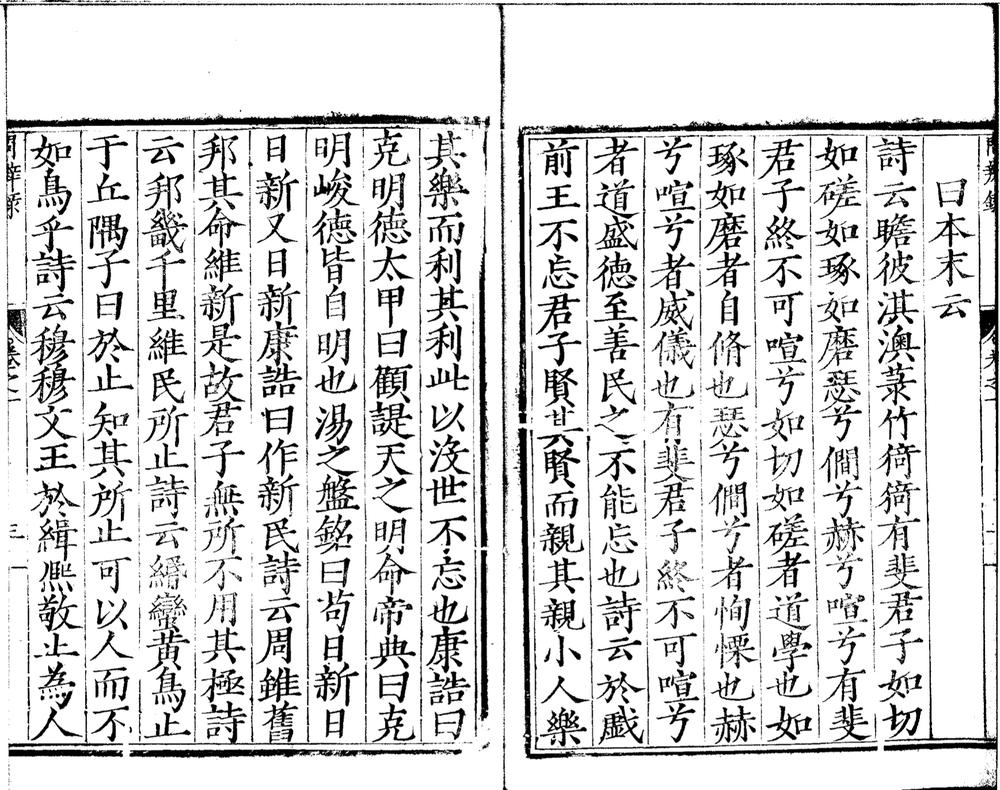 曰本末云
詩云瞻彼淇澳菉竹猗猗有斐君子如切
如磋如琢如磨瑟兮僩兮赫兮喧兮有斐
君子終不可喧兮如切如磋者道學也如
琢如磨者自脩也瑟兮僩兮者恂慄也赫
兮喧兮者威儀也有斐君子終不可喧兮
者道盛德至善民之不能忘也詩云於戲
前王不忘君子賢其賢而親其親小人樂
其樂而利其利此以沒世不忘也康誥曰
克明德太甲曰顧諟天之明命帝典曰克
明峻德皆自明也湯之盤銘曰苟日新日
日新又日新康誥曰作新民詩云周雖舊
邦其命維新是故君子無所不用其極詩
云邦畿千里維民所止詩云緡蠻黃鳥止
于丘隅子曰於止知其所止可以人而不
如鳥乎詩云穆穆文王於緝熈敬止為人